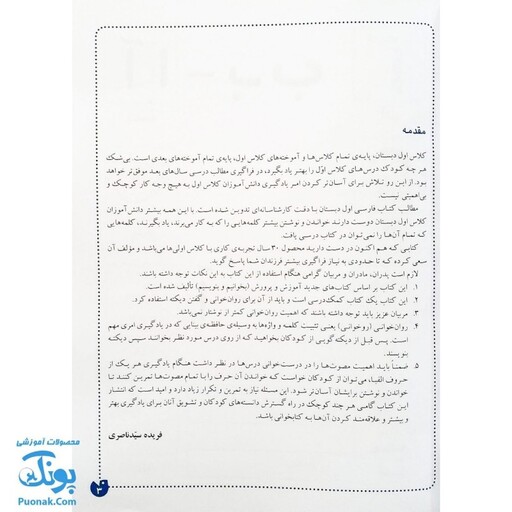 مقدمه
کلاس اول دبستان، پایه‌ی تمام کلاس‌ها و آموخته‌های کلاس اول، پایه‌ی تمام آموخته‌های بعدی است. بی‌شک
هر چه کودک درس‌های کلاس اوّل را بهتر یاد بگیرد، در فراگیری مطالب درسی سال‌های بعد موفق‌تر خواهد
بود. از این رو تلاش برای آسان‌تر کردن امر یادگیری دانش‌آموزان کلاس اول به هیچ وجه کار کوچک و
بی‌اهمیتی نیست.
مطالب کتاب فارسی اول دبستان با دقت کارشناسانه‌ای تدوین شده است. با این همه بیشتر دانش‌آموزان
کلاس اول دبستان دوست دارند خواندن و نوشتن بیشتر کلمه‌هایی را که به کار می‌برند، یاد بگیرند، کلمه‌هایی
که تمام آن‌ها را نمی‌توان در کتاب درسی یافت.
کتابی که هم اکنون در دست دارید محصول ۳۰ سال تجربه‌ی کاری با کلاس اولی‌ها می‌باشد و مؤلف آن
سعی کرده که تا حدودی به نیاز فراگیری بیشتر فرزندان شما پاسخ گوید.
لازم است پدران، مادران و مربیان گرامی هنگام استفاده از این کتاب به این نکات توجه داشته باشند:
۱. این کتاب بر اساس کتاب‌های جدید آموزش و پرورش (بخوانیم و بنویسیم) تألیف شده است.
۲. این کتاب یک کتاب کمک‌درسی است و باید از آن برای روان‌خوانی و گفتن دیکته استفاده کرد.
۳. مربیان عزیز باید توجه داشته باشند که اهمیت روان‌خوانی کمتر از نوشتار نمی‌باشد.
۴. روان‌خوانی (روخوانی) یعنی تثبیت کلمه و واژه‌ها به وسیله‌ی حافظه‌ی بینایی که در یادگیری امری مهم
است. پس قبل از دیکته گویی از کودکان بخواهید که از روی درس مورد نظر بخوانند سپس دیکته
بنویسند.
۵. ضمناً باید اهمیت مصوت‌ها را در درست‌خوانی درس‌ها در نظر داشت هنگام یادگیری هر یک از
حروف الفبا، می‌توان از کودکان خواست که خواندن آن حرف را با تمام مصوت‌ها تمرین کنند تا
خواندن و نوشتن برایشان آسان‌تر شود. این مسئله نیاز به تمرین و تکرار زیاد دارد و امید است که انتشار
این کتاب گامی هر چند کوچک در راه گسترش دانسته‌های کودکان و تشویق آنان برای یادگیری بهتر
و بیشتر و علاقه‌مند کردن آن‌ها به کتابخوانی باشد.
فریده سیّدناصری
۳
محصولات آموزشی
پونک
Puonak.Com